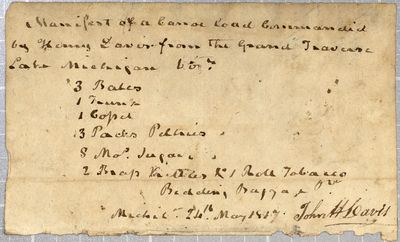 Manifest of a Canoe load Commanded
by Henry Davis from the Grand Traverse
Lake Michigan
3 Bales
1 Trunk
1
3 Packs Peltries
8 Mos. Sugar
2 Brass Kettles & 1 Roll Tobacco
Bedding Baggage
Michil. 24th May 1817 John H Davis